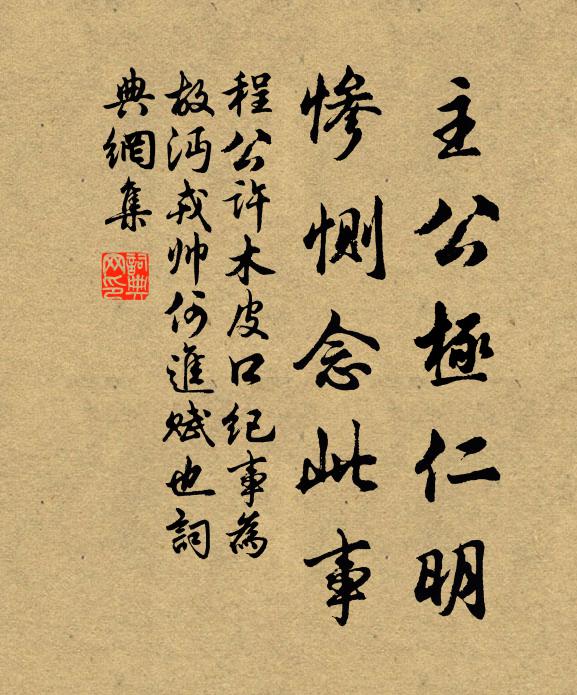 主公極仁明
慘惻念此事
程公許木皮口紀事為
故沔戎帥何進賦也詞
典網集
詞典網印